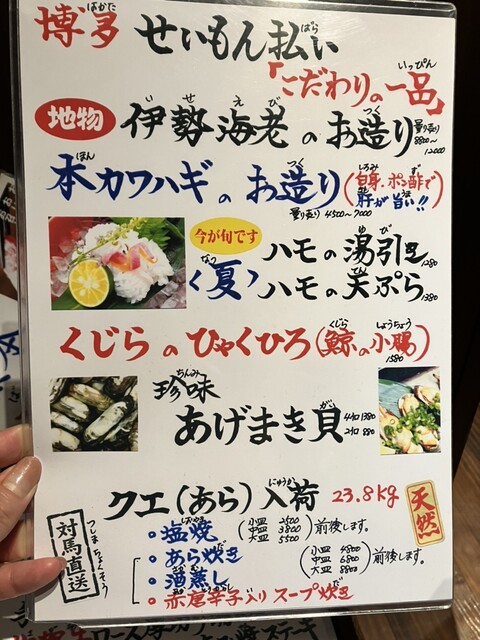 博多 せいもん払い
はかた ばら
「こだわりの一品」
いっぴん
地物 伊勢海老のお造り
いせえび つく
量り売り 8800~12000
本カワハギのお造り
ほん つく
(白身、ポン酢で肝が旨い!!)
しろみ ず きも うま
量り売り 4500~7000
今が旬です
〈夏〉
なつ
ハモの湯引き 1280
ゆび
ハモの天ぷら 1380
てん
くじらのひゃくひろ(鯨の小腸)
くじら しょうちょう
1580
珍味
ちんみ
あげまき貝
がい
4コ 1380
2コ 880
クエ(あら)入荷 23.8kg
にゅうか
天然
対馬直送
つしまちょくそう
・塩焼
(小皿 2500
中皿 3800
大皿 5500) 前後します。
・あら炊き
・酒蒸し
・赤唐辛子入りスープ炊き
(小皿 4800
中皿 6800
大皿 8800) 前後します。